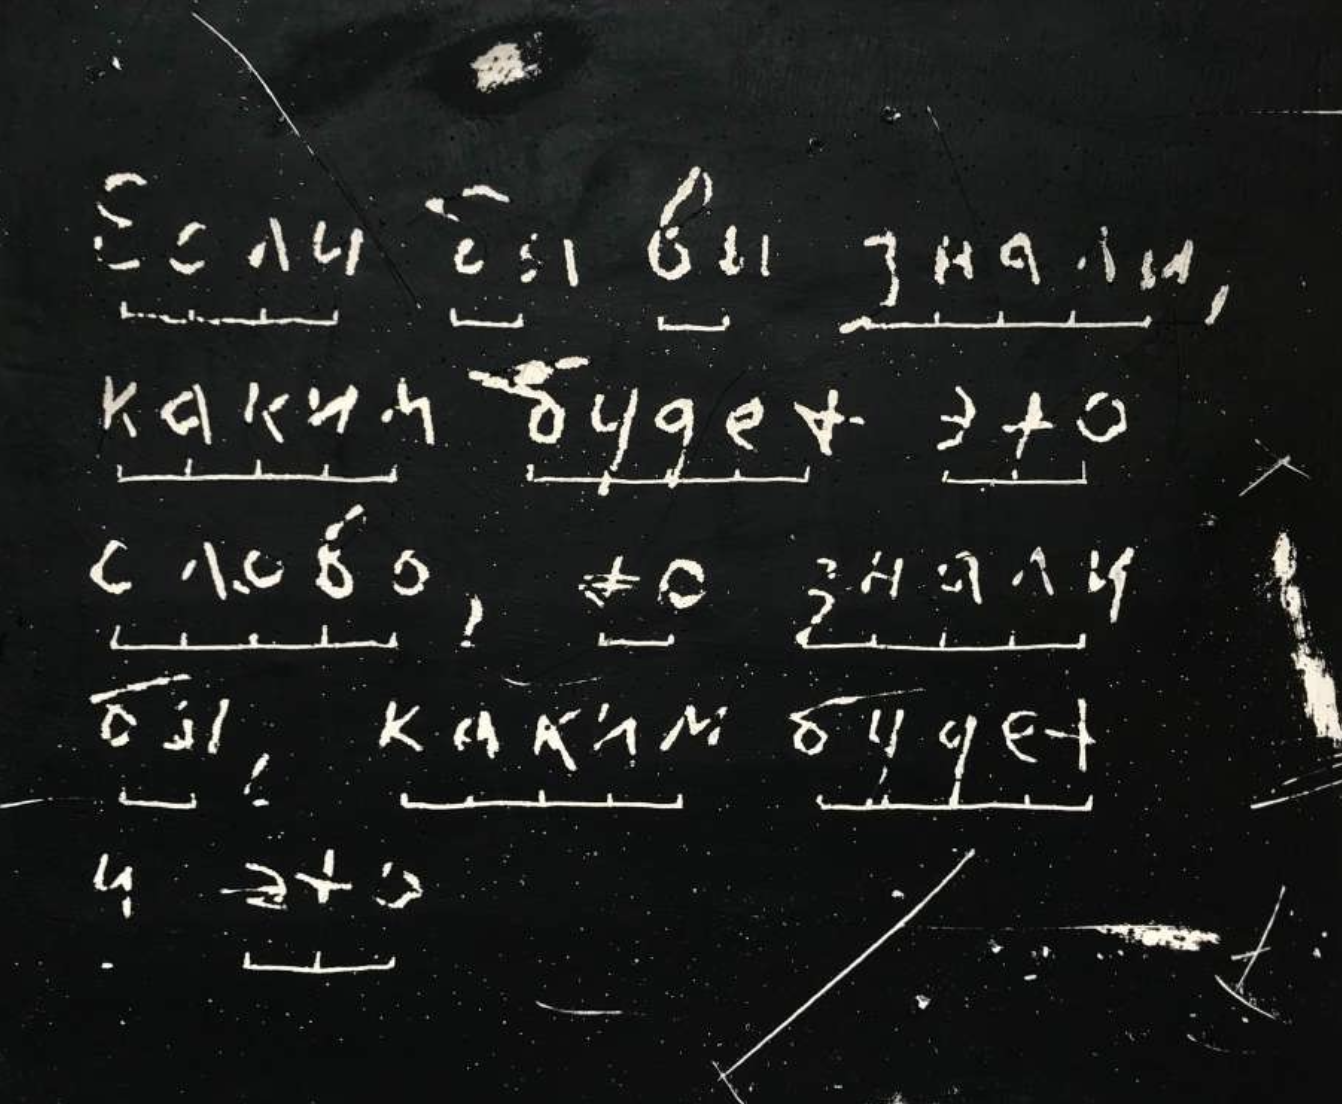 Если бы вы знали,
каким будет это
слово, то знали
бы, каким будет
и это